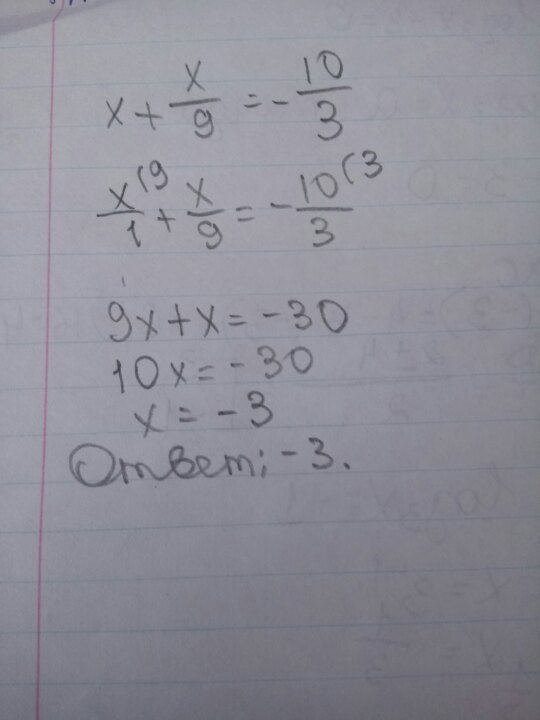 x + x/9 = - 10/3
x(9/1 + x/9 = - 10(3/3
9x + x = - 30
10x = - 30
x = - 3
Ответ: - 3.